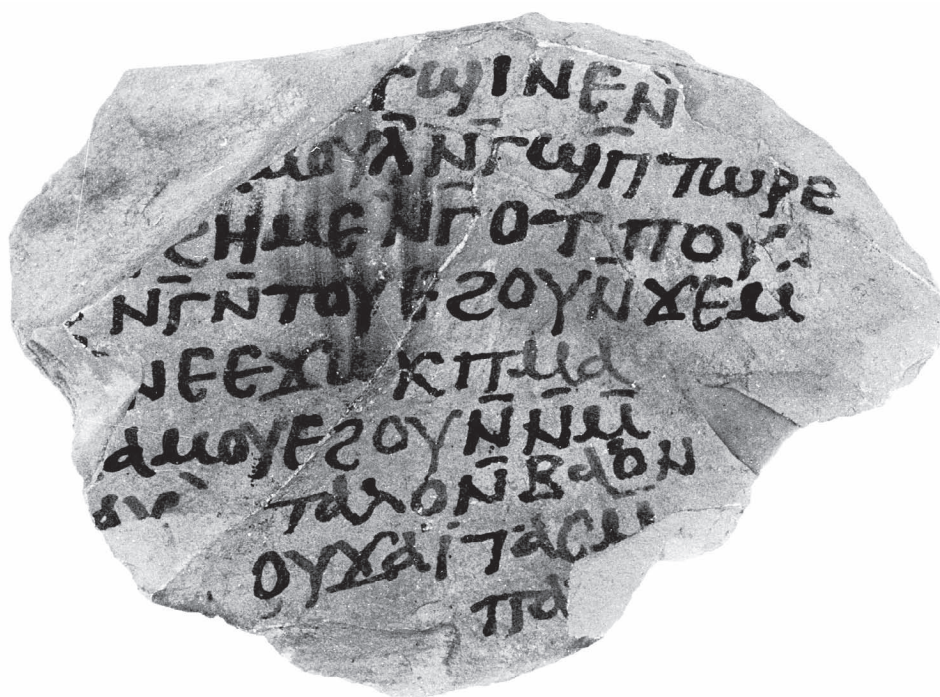 ⲅϣⲓⲛⲉⲛ̄
ⲙⲟⲩⲗ̄ⲛ̄ⲅϣⲡ̄ⲧⲱⲣⲉ
ϩⲏⲙⲉⲛ̄ⲅⲟⲧⲡⲟⲩ
ⲛ̄ⲅⲛ̄ⲧⲟⲩⲉϩⲟⲩⲛ̄ϫⲉⲙ
ⲛⲉⲉϫⲱⲕⲡⲙⲁ
ⲁⲙⲟⲩⲉϩⲟⲩⲛ̄ⲛ̄ⲙ̄
ⲧⲁⲗⲟⲛ̄ⲃⲁⲟⲛ
ⲟⲩϫⲁⲓ̈ⲧⲁⲥⲙ
ⲡⲁ